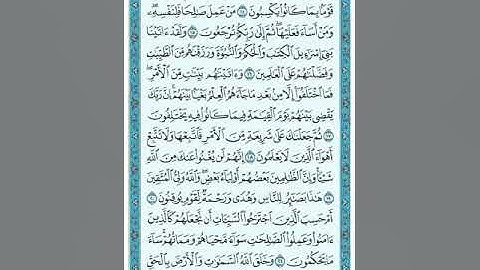 قَوْمًۢا بِمَا كَانُوا۟ يَكْسِبُونَ ١٤ مَنْ عَمِلَ صَٰلِحًا فَلِنَفْسِهِۦ
وَمَنْ أَسَآءَ فَعَلَيْهَا ثُمَّ إِلَىٰ رَبِّكُمْ تُرْجَعُونَ ١٥ وَلَقَدْ ءَاتَيْنَا
بَنِىٓ إِسْرَٰٓءِيلَ ٱلْكِتَٰبَ وَٱلْحُكْمَ وَٱلنُّبُوَّةَ وَرَزَقْنَٰهُم مِّنَ ٱلطَّيِّبَٰتِ
وَفَضَّلْنَٰهُمْ عَلَى ٱلْعَٰلَمِينَ ١٦ وَءَاتَيْنَٰهُم بَيِّنَٰتٍ مِّنَ ٱلْأَمْرِ
فَمَا ٱخْتَلَفُوٓا۟ إِلَّا مِنۢ بَعْدِ مَا جَآءَهُمُ ٱلْعِلْمُ بَغْيًۢا بَيْنَهُمْ إِنَّ رَبَّكَ
يَقْضِى بَيْنَهُمْ يَوْمَ ٱلْقِيَٰمَةِ فِيمَا كَانُوا۟ فِيهِ يَخْتَلِفُونَ
١٧ ثُمَّ جَعَلْنَٰكَ عَلَىٰ شَرِيعَةٍ مِّنَ ٱلْأَمْرِ فَٱتَّبِعْهَا وَلَا تَتَّبِعْ
أَهْوَآءَ ٱلَّذِينَ لَا يَعْلَمُونَ ١٨ إِنَّهُمْ لَن يُغْنُوا۟ عَنكَ مِنَ ٱللَّهِ
شَيْـًٔا وَإِنَّ ٱلظَّٰلِمِينَ بَعْضُهُمْ أَوْلِيَآءُ بَعْضٍ وَٱللَّهُ وَلِىُّ ٱلْمُتَّقِينَ
١٩ هَٰذَا بَصَٰٓئِرُ لِلنَّاسِ وَهُدًى وَرَحْمَةٌ لِّقَوْمٍ يُوقِنُونَ ٢٠
أَمْ حَسِبَ ٱلَّذِينَ ٱجْتَرَحُوا۟ ٱلسَّيِّـَٔاتِ أَن نَّجْعَلَهُمْ كَٱلَّذِينَ
ءَامَنُوا۟ وَعَمِلُوا۟ ٱلصَّٰلِحَٰتِ سَوَآءً مَّحْيَاهُمْ وَمَمَاتُهُمْ سَآءَ
مَا يَحْكُمُونَ ٢١ وَخَلَقَ ٱللَّهُ ٱلسَّمَٰوَٰتِ وَٱلْأَرْضَ بِٱلْحَقِّ